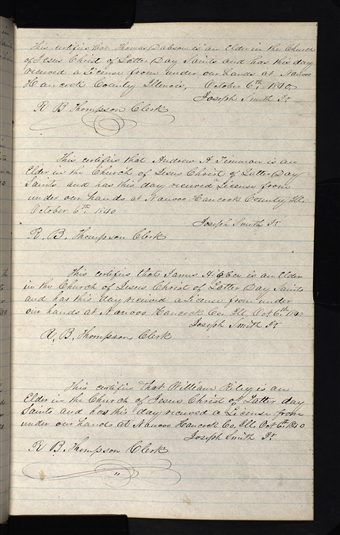 This certifies that Thomas Dobson is an Elder in the Church
of Jesus Christ of Latter Day Saints and has this day
received a License from under our hands at Nauvoo
Hancock County Illinois, October 6th 1840
Joseph Smith Jr.
R B Thompson Clerk
This certifies that Andrew H is an
Elder in the Church of Jesus Christ of Latter Day
Saints and has this day received License from
under our hands at Nauvoo Hancock County Ill.
October 6th 1840
Joseph Smith Jr.
R. B. Thompson Clerk
This certifies that James H. is an Elder
in the Church of Jesus Christ of Latter Day Saints
and has this day received a License from under
our hands at Nauvoo Hancock Co. Ill. Oct 6th 1840
Joseph Smith Jr.
R, B, Thompson Clerk
This certifies That William Riley is an
Elder in the Church of Jesus Christ of Latter day
Saints and has this day received a License from
under our hands at Nauvoo Hancock Co, Ill. Oct 6th 1840
Joseph Smith Jr.
R B Thompson Clerk